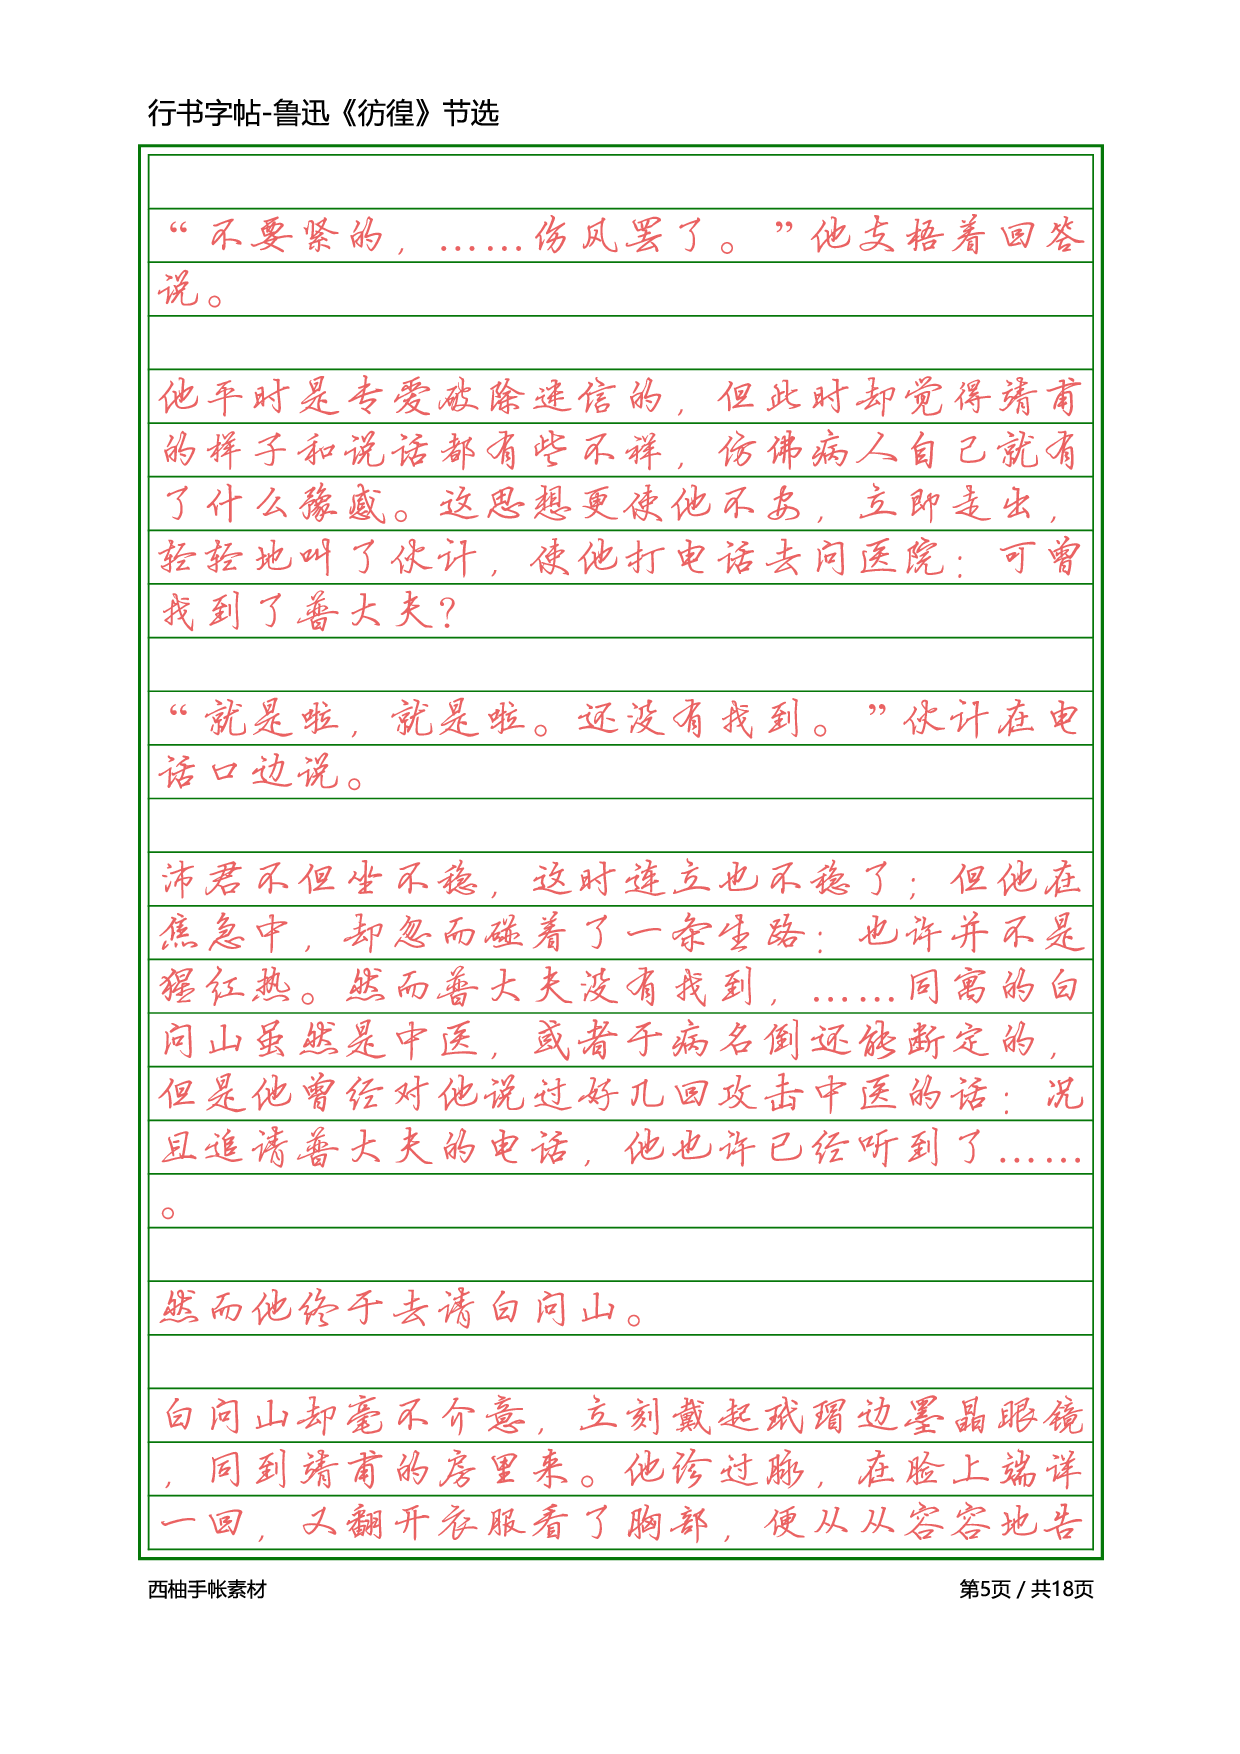 行书字帖-鲁迅《彷徨》节选
“不要紧的，……伤风罢了。”他支梧着回答
说。
他平时是专爱破除迷信的，但此时却觉得靖甫
的样子和说话都有些不祥，仿佛病人自己就有
了什么豫感。这思想更使他不安，立即走出，
轻轻地叫了伙计，使他打电话去问医院：可曾
找到了普大夫？
“就是啦，就是啦。还没有找到。”伙计在电
话口边说。
沛君不但坐不稳，这时连立也不稳了；但他在
焦急中，却忽而碰着了一条生路：也许并不是
猩红热。然而普大夫没有找到，……同寓的白
问山虽然是中医，或者于病名倒还能断定的，
但是他曾经对他说过好几回攻击中医的话：况
且追请普大夫的电话，他也许已经听到了……
。
然而他终于去请白问山。
白问山却毫不介意，立刻戴起玳瑁边墨晶眼镜
，同到靖甫的房里来。他诊过脉，在脸上端详
一回，又翻开衣服看了胸部，便从从容容地告
西柚手帐素材
第5页 / 共18页